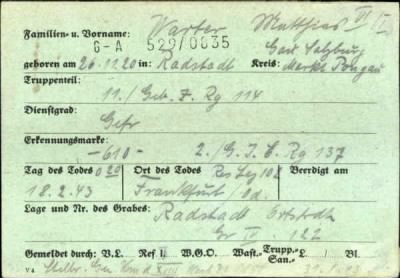 Familien- u. Vorname: Warter Matthias VI
6-A 529/0035 Gau Salzburg
geboren am 26.12.20 in: Radstadt Kreis: Markt Pongau
Truppenteil:
11./Geb. J. Rg 114
Dienstgrad:
Gefr
Erkennungsmarke:
-610- 2./G. J. E. Rg 137
Tag des Todes Ort des Todes Res Laz Beerdigt am
18.2.43 Frankfurt/Od.
Lage und Nr. des Grabes: Radstadt
Gr IV 122
Gemeldet durch: V.L. Ref. W.G.O. Wast.- Trupp.- San.- L./ Bl.